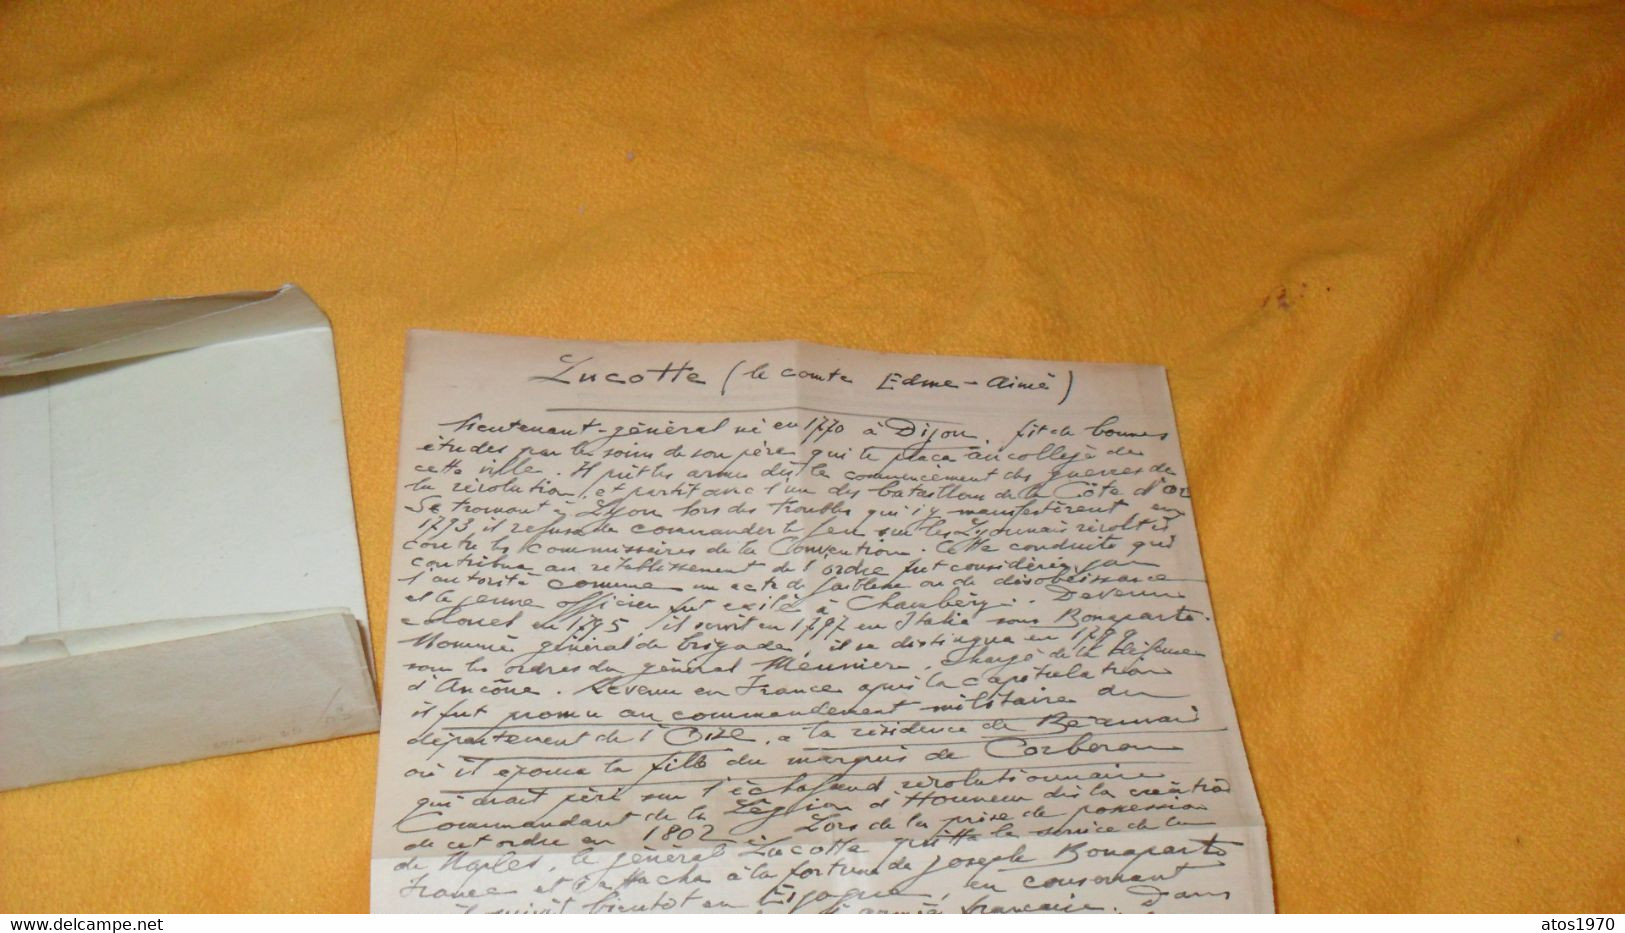 Lucotte (le comte Edme-Aimé)
lieutenant-général né en 1770 à Dijon, fit de bonnes
études par les soins de son père qui le plaça au collège de
cette ville. Il prit les armes dès le commencement des guerres de
la révolution, et partit avec l'un des bataillons de la Côte d'Or
Se trouvant à Lyon lors des troubles qui s'y manifestèrent en
1793, il refusa de commander le feu sur les Lyonnais révoltés
contre les commissaires de la Convention. Cette conduite qui
contribua au rétablissement de l'ordre fut considérée par
l'autorité comme un acte de faiblesse ou de désobéissance
et le jeune officier fut exilé à Chambéry. Devenu
colonel en 1795, il servit en 1797 en Italie sous Bonaparte.
Nommé général de brigade, il se distingua en 1799
sous les ordres du général Meunier, chargé de la défense
d'Ancône. Revenu en France après la capitulation
il fut promu au commandement militaire du
département de l'Oise, à la résidence de Beauvais
où il épousa la fille du marquis de Corberon
qui avait péri sur l'échafaud révolutionnaire
Commandant de la Légion d'Honneur dès la création
de cet ordre en 1802. Lors de la prise de possession
de Naples, le général Lucotte quitta le service de la
France et s'attacha à la fortune de Joseph Bonaparte
bientôt en Espagne, en conservant
armée française. Dans
atos1970